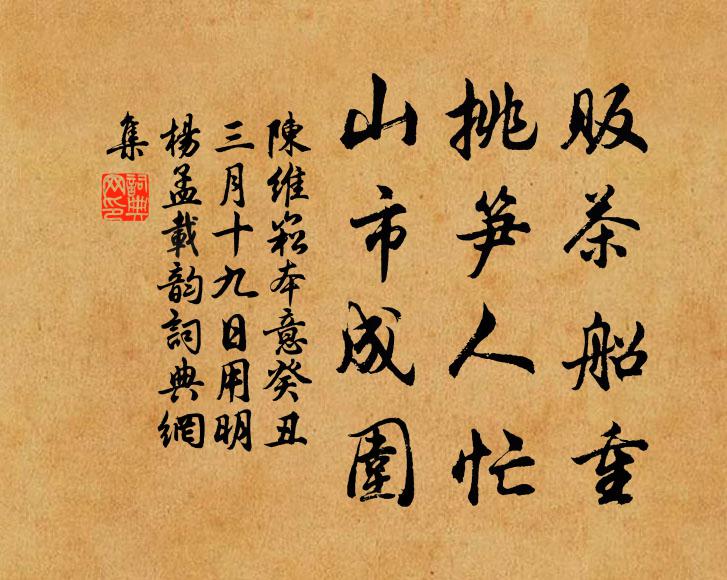 販茶船重
挑笋人忙
山市成圍
陳維崧本意癸丑
三月十九日用明
楊孟載韵詞典網
集
詞典網印